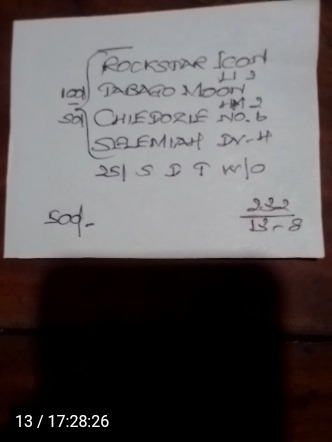 ROCKSTAR ICON
LI 3
100/ TABAGO MOON
HM 2
50/ CHIEDOZIE NO. 6
SELEMIAH DV-4
25/ S D T W/O
500/-
232
13-8
13 / 17:28:26